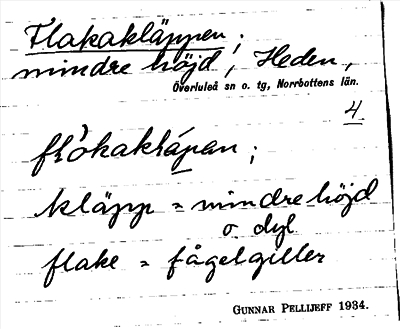 Flakakläppen;
mindre höjd, Heden,
Överluleå sn o. tg, Norrbottens län.
4
flò̀kaklápan;
kläpp = mindre höjd
o. dyl.
flake = fågelgiller
GUNNAR PELLIJEFF 1934.